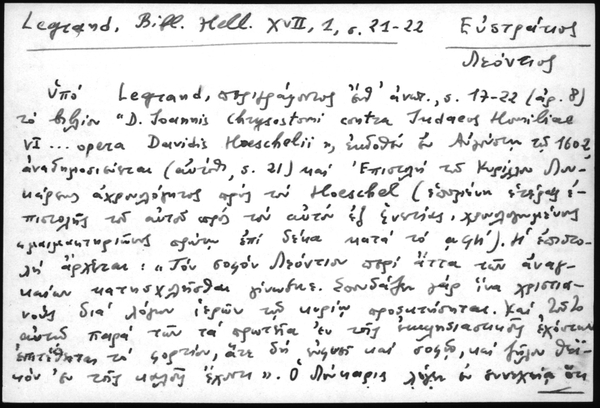 Legrand, Bibl. Hell. XVII, 1, σ. 21-22
Εὐστράτιος
Λεόντιος
Ὑπό Legrand, περιγράφοντος ἔνθ' ἀνωτ., σ. 17-22 (ἀρ. 8)
τό βιβλίον "D. Ioannis Chrysostomi contra Iudaeos Homiliae
VI ... opera Davidis Hoeschelii", ἐκδοθέν ἐν Αὐγούστῃ τῷ 1602
ἀναδημοσιεύεται (αὐτόθι, σ. 21) καί Ἐπιστολή τοῦ Κυρίλλου Λου-
κάρεως ἀχρονολόγητος πρός τόν Hoeschel (ἑπομένη ἑτέρας ἐ-
πιστολῆς τοῦ αὐτοῦ πρός τόν αὐτόν ἐξ Ἐνετίας, χρονολογημένης
μαιμακτηριῶνος πρώτῃ ἐπί δέκα κατά τό αφή). Ἡ ἐπιστο-
λή ἄρχεται: «Τόν σοφόν Λεόντιον περί ἄττα τῶν ἀναγ-
καίων κατησχολῆσθαι γίνωσκε. Σπουδάζει γάρ ἵνα χριστια-
νούς διά λόγων ἱερῶν τῷ κυρίῳ προσκτήσηται. Καί τοῦτο
αὐτῷ παρά τῶν τά πρωτεῖα ἐν τοῖς ἐκκλησιαστικοῖς ἐχόντων
ἐπιτέθηται τό φορτίον, ἅτε δή καί σοφῷ, καί ζῆλον θεϊ-
κόν ἐν τοῖς καλοῖς ἔχοντι». Ὁ Λούκαρις λέγει ἐν συνεχείᾳ ὅτι